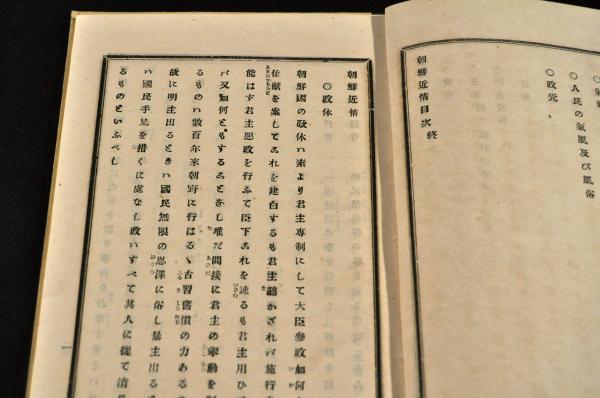 氣
○人民の氣風及び風俗
○政党
朝鮮近情目次終
朝鮮近情
○政体
朝鮮國の政体ハ素より君主専制にして大臣参政如何
仕献を案してこれを建白するも君主聽かざれバ施行
能はす君主惡政を行ふて臣下これを諌るも君主用ひ
バ又如何ともすることなし唯だ間接に君主の擧動を
るものハ數百年來朝野に行はるゝ古習舊慣の力ある
故に明主出るときハ國民無限の恩澤に俗し暴主出る
ハ國民手足を措くに處なし政ハすべて其人に從て清
るものといふべし
一